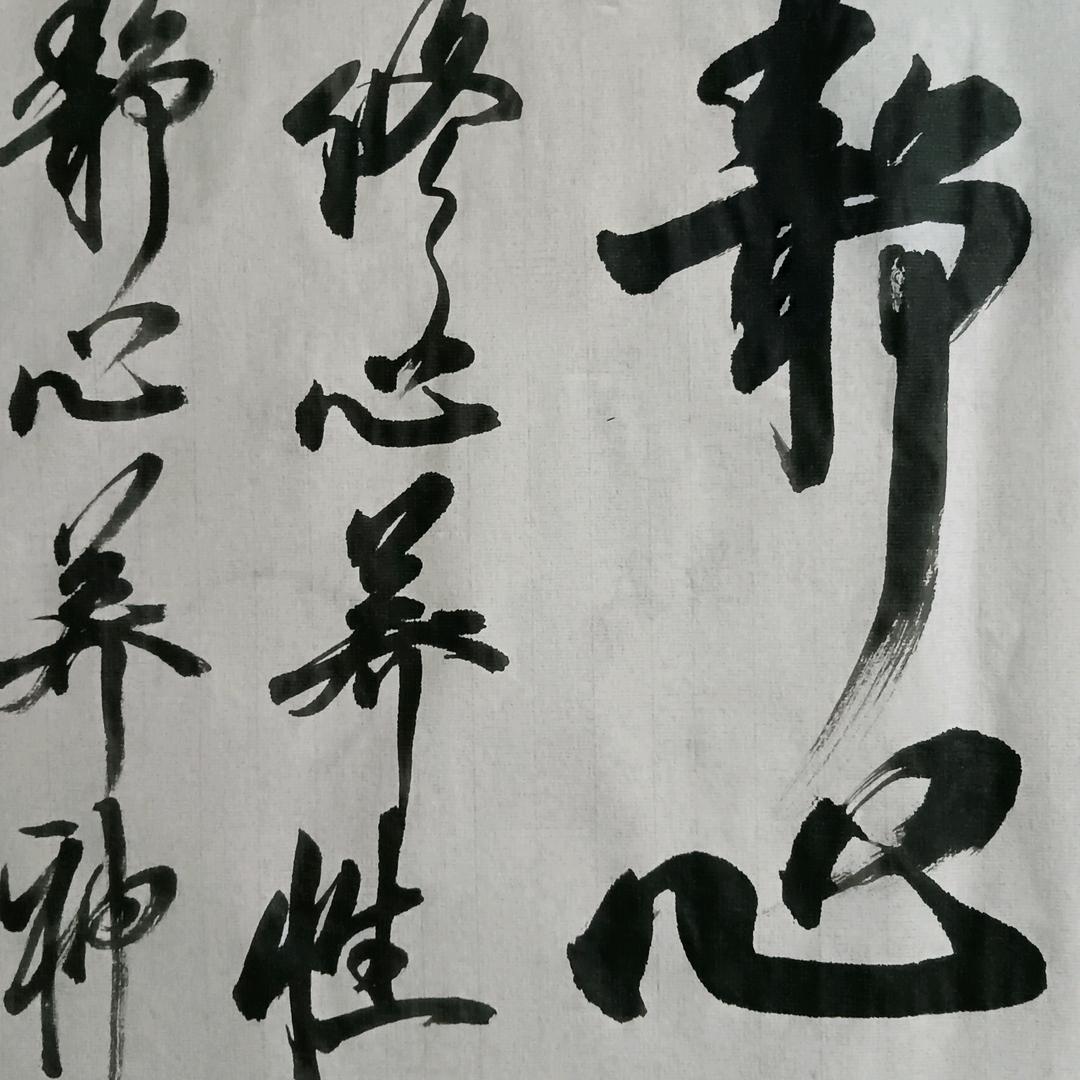 静心
修心养性
静心养神